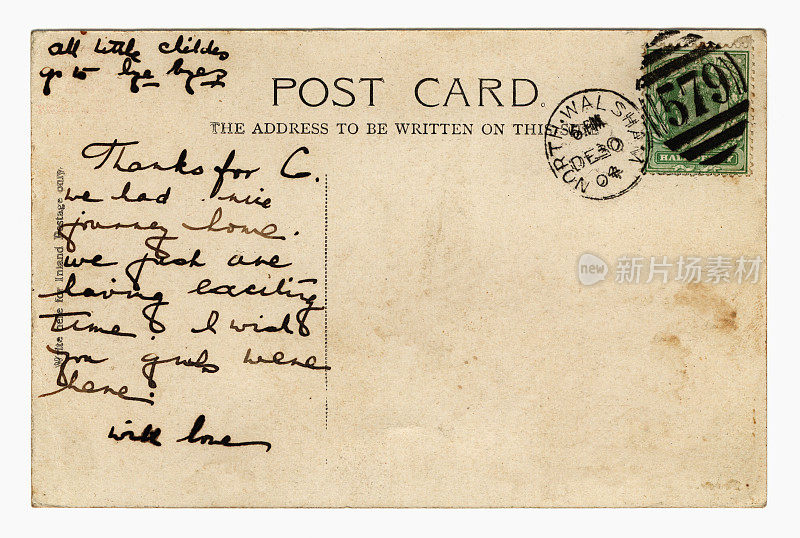 all little childes
go to bye byes
POST CARD.
THE ADDRESS TO BE WRITTEN ON THIS
NORTH WALSHAM
DE 30
04
579
HALF
Write here for Inland Postage only.
Thanks for C.
we had nice
journey home.
we just are
having exciting
time. I wish
you girls were
here.
with love
new 新片场素材